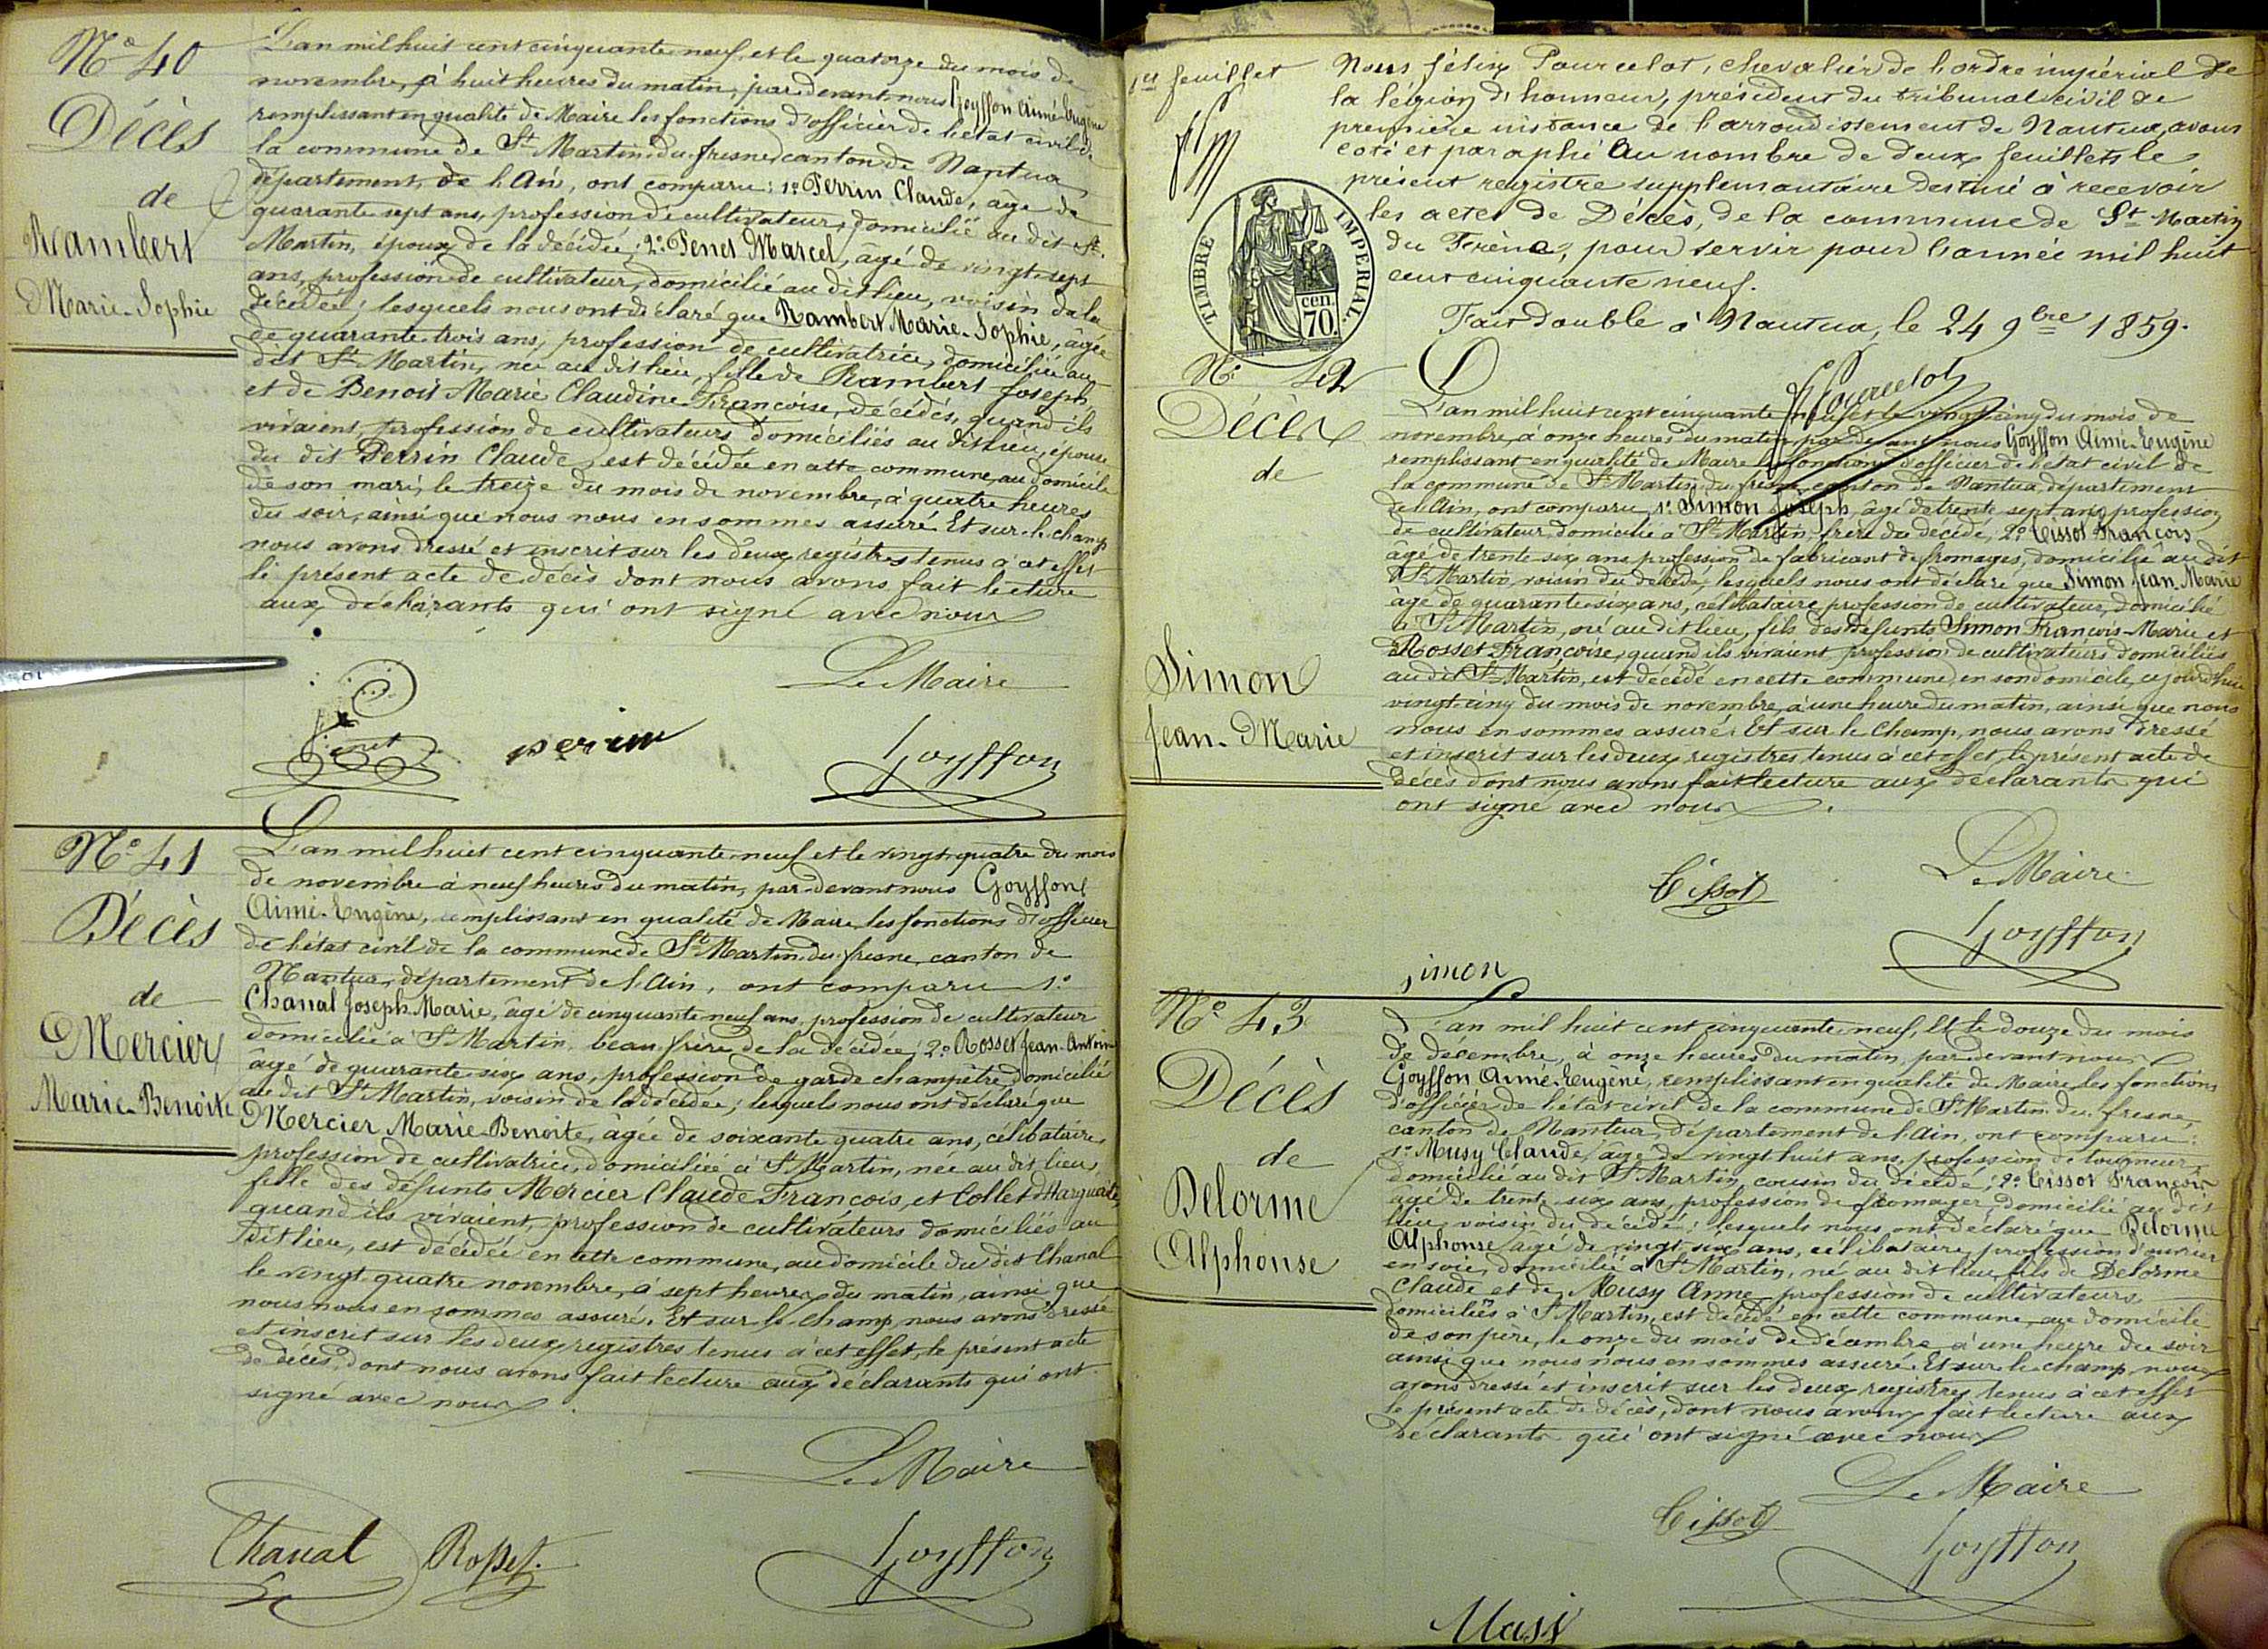 N° 40
Décès
de
Rambert
Marie-Sophie
L'an mil huit cent cinquante neuf et le quatorze du mois de
novembre, à huit heures du matin, par devant nous Goyffon Aimé-Eugène
remplissant en qualité de Maire les fonctions d'officier de l'état civil de
la commune de St Martin-du-fresne, canton de Nantua,
département de l'Ain, ont comparu: 1° Perrin Claude, âgé de
quarante-sept ans, profession de cultivateur, domicilié au dit St.
Martin, époux de la décédée; 2° Penet Marcel, âgé de vingt-sept
ans, profession de cultivateur, domicilié au dit lieu, voisin de la
décédée; lesquels nous ont déclaré que Rambert Marie-Sophie, âgée
de quarante-trois ans, profession de cultivatrice, domiciliée au
dit St Martin, née au dit lieu, fille de Rambert Joseph
et de Benoit Marie Claudine Françoise, décédés, quand ils
vivaient, profession de cultivateurs domiciliés au dit lieu, épouse
du dit Perrin Claude, est décédée en cette commune, au domicile
de son mari, le treize du mois de novembre, à quatre heures
du soir, ainsi que nous nous en sommes assuré. Et sur-le-champ
nous avons dressé et inscrit sur les deux registres tenus à cet effet
le présent acte de décès dont nous avons fait lecture
aux déclarants qui ont signé avec nous
Le Maire
Penet
perin
Goyffon
N° 41
Décès
de
Mercier
Marie-Benoite
L'an mil huit cent cinquante-neuf et le vingt-quatre du mois
de novembre à neuf heures du matin, par-devant nous Goyffon
Aimé-Eugène, remplissant en qualité de Maire les fonctions d'officier
de l'état civil de la commune de St Martin-du-fresne, canton de
Nantua, département de l'Ain, ont comparu 1°
Chanal Joseph-Marie, âgé de cinquante-neuf ans, profession de cultivateur
domicilié à St Martin, beau-frère de la décédée; 2° Rosset Jean-Antoine
âgé de quarante-six ans, profession de garde champêtre, domicilié
au dit St Martin, voisin de la décédée; lesquels nous ont déclaré que
Mercier Marie-Benoite, agée de soixante-quatre ans, célibataire,
profession de cultivatrice, domiciliée à St Martin, née au dit lieu,
fille des défunts Mercier Claude François, et Collet Marguerite,
quand ils vivaient, profession de cultivateurs domiciliés au
dit lieu, est décédée en cette commune, au domicile du dit Chanal
le vingt-quatre novembre, à sept heures du matin, ainsi que
nous nous en sommes assuré. Et sur le champ, nous avons dressé
et inscrit sur les deux registres tenus à cet effet, le présent acte
de décès, dont nous avons fait lecture aux déclarants qui ont
signé avec nous
Le Maire
Chanal
Rosset
Goyffon
1er feuillet
Nous félix Pourcelot, chevalier de l'ordre impérial de
la légion d'honneur, président du tribunal civil de
première instance de l'arrondissement de Nantua, avons
coté et paraphé Au nombre de deux feuillets le
présent registre supplémentaire destiné à recevoir
les actes de Décès, de la commune de St Martin
du Frêne, pour servir pour l'année mil huit
cent cinquante neuf.
Fait double à Nantua, le 24 9bre 1859.
TIMBRE IMPERIAL.
cen.
70.
Pourcelot
N° 42
Décès
de
Simon
Jean-Marie
L'an mil huit cent cinquante neuf et le vingt cinq du mois de
novembre, à onze heures du matin par devant nous Goyffon Aimé-Eugène
remplissant en qualité de Maire les fonctions d'officier de l'état civil de
la commune de St Martin du fresne, canton de Nantua, département
de l'Ain, ont comparu 1° Simon Joseph, âgé de trente sept ans, profession
de cultivateur, domicilié à St Martin, frère du décédé, 2° Tissot François
âgé de trente six ans, profession de fabricant de fromages, domicilié au dit
St Martin, voisin du décédé, lesquels nous ont déclaré que Simon Jean-Marie
âgé de quarante-six ans, célibataire, profession de cultivateur, domicilié
à St Martin, né au dit lieu, fils des défunts Simon François-Marie et
Rosset Françoise, quand ils vivaient profession de cultivateurs domiciliés
au dit St Martin, est décédé en cette commune, en son domicile, ce jourd'hui
vingt-cinq du mois de novembre, à une heure du matin, ainsi que nous
nous en sommes assuré. Et sur le champ, nous avons dressé
et inscrit sur les deux registres tenus à cet effet, le présent acte de
décès dont nous avons fait lecture aux déclarants qui
ont signé avec nous.
Le Maire
Tissot
Goyffon
simon
N° 43
Décès
de
Delorme
Alphonse
L'an mil huit cent cinquante-neuf, et le douze du mois
de décembre, à onze heures du matin, par devant nous
Goyffon Aimé-Eugène, remplissant en qualité de Maire les fonctions
d'officier de l'état civil de la commune de St Martin-du-fresne,
canton de Nantua, département de l'Ain, ont comparu:
1° Musy Claude, âgé de vingt huit ans, profession de tourneur,
domicilié au dit St Martin, cousin du décédé; 2° Tissot François
âgé de trente-six ans, profession de fromager, domicilié au dit
lieu, voisin du décédé; lesquels nous ont déclaré que Delorme
Alphonse, âgé de vingt-six ans, célibataire, profession d'ouvrier
en soie, domicilié à St Martin, né au dit lieu, fils de Delorme
Claude et de Musy Anne, profession de cultivateurs,
domiciliés à St Martin, est décédé en cette commune, au domicile
de son père, le onze du mois de décembre à une heure du soir
ainsi que nous nous en sommes assuré. Et sur le champ, nous
avons dressé et inscrit sur les deux registres tenus à cet effet
le présent acte de décès, dont nous avons fait lecture aux
déclarants qui ont signé avec nous
Le Maire
Tissot
Goyffon
Masi